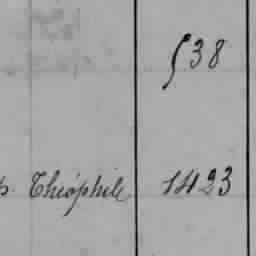 538
Théophile 1423